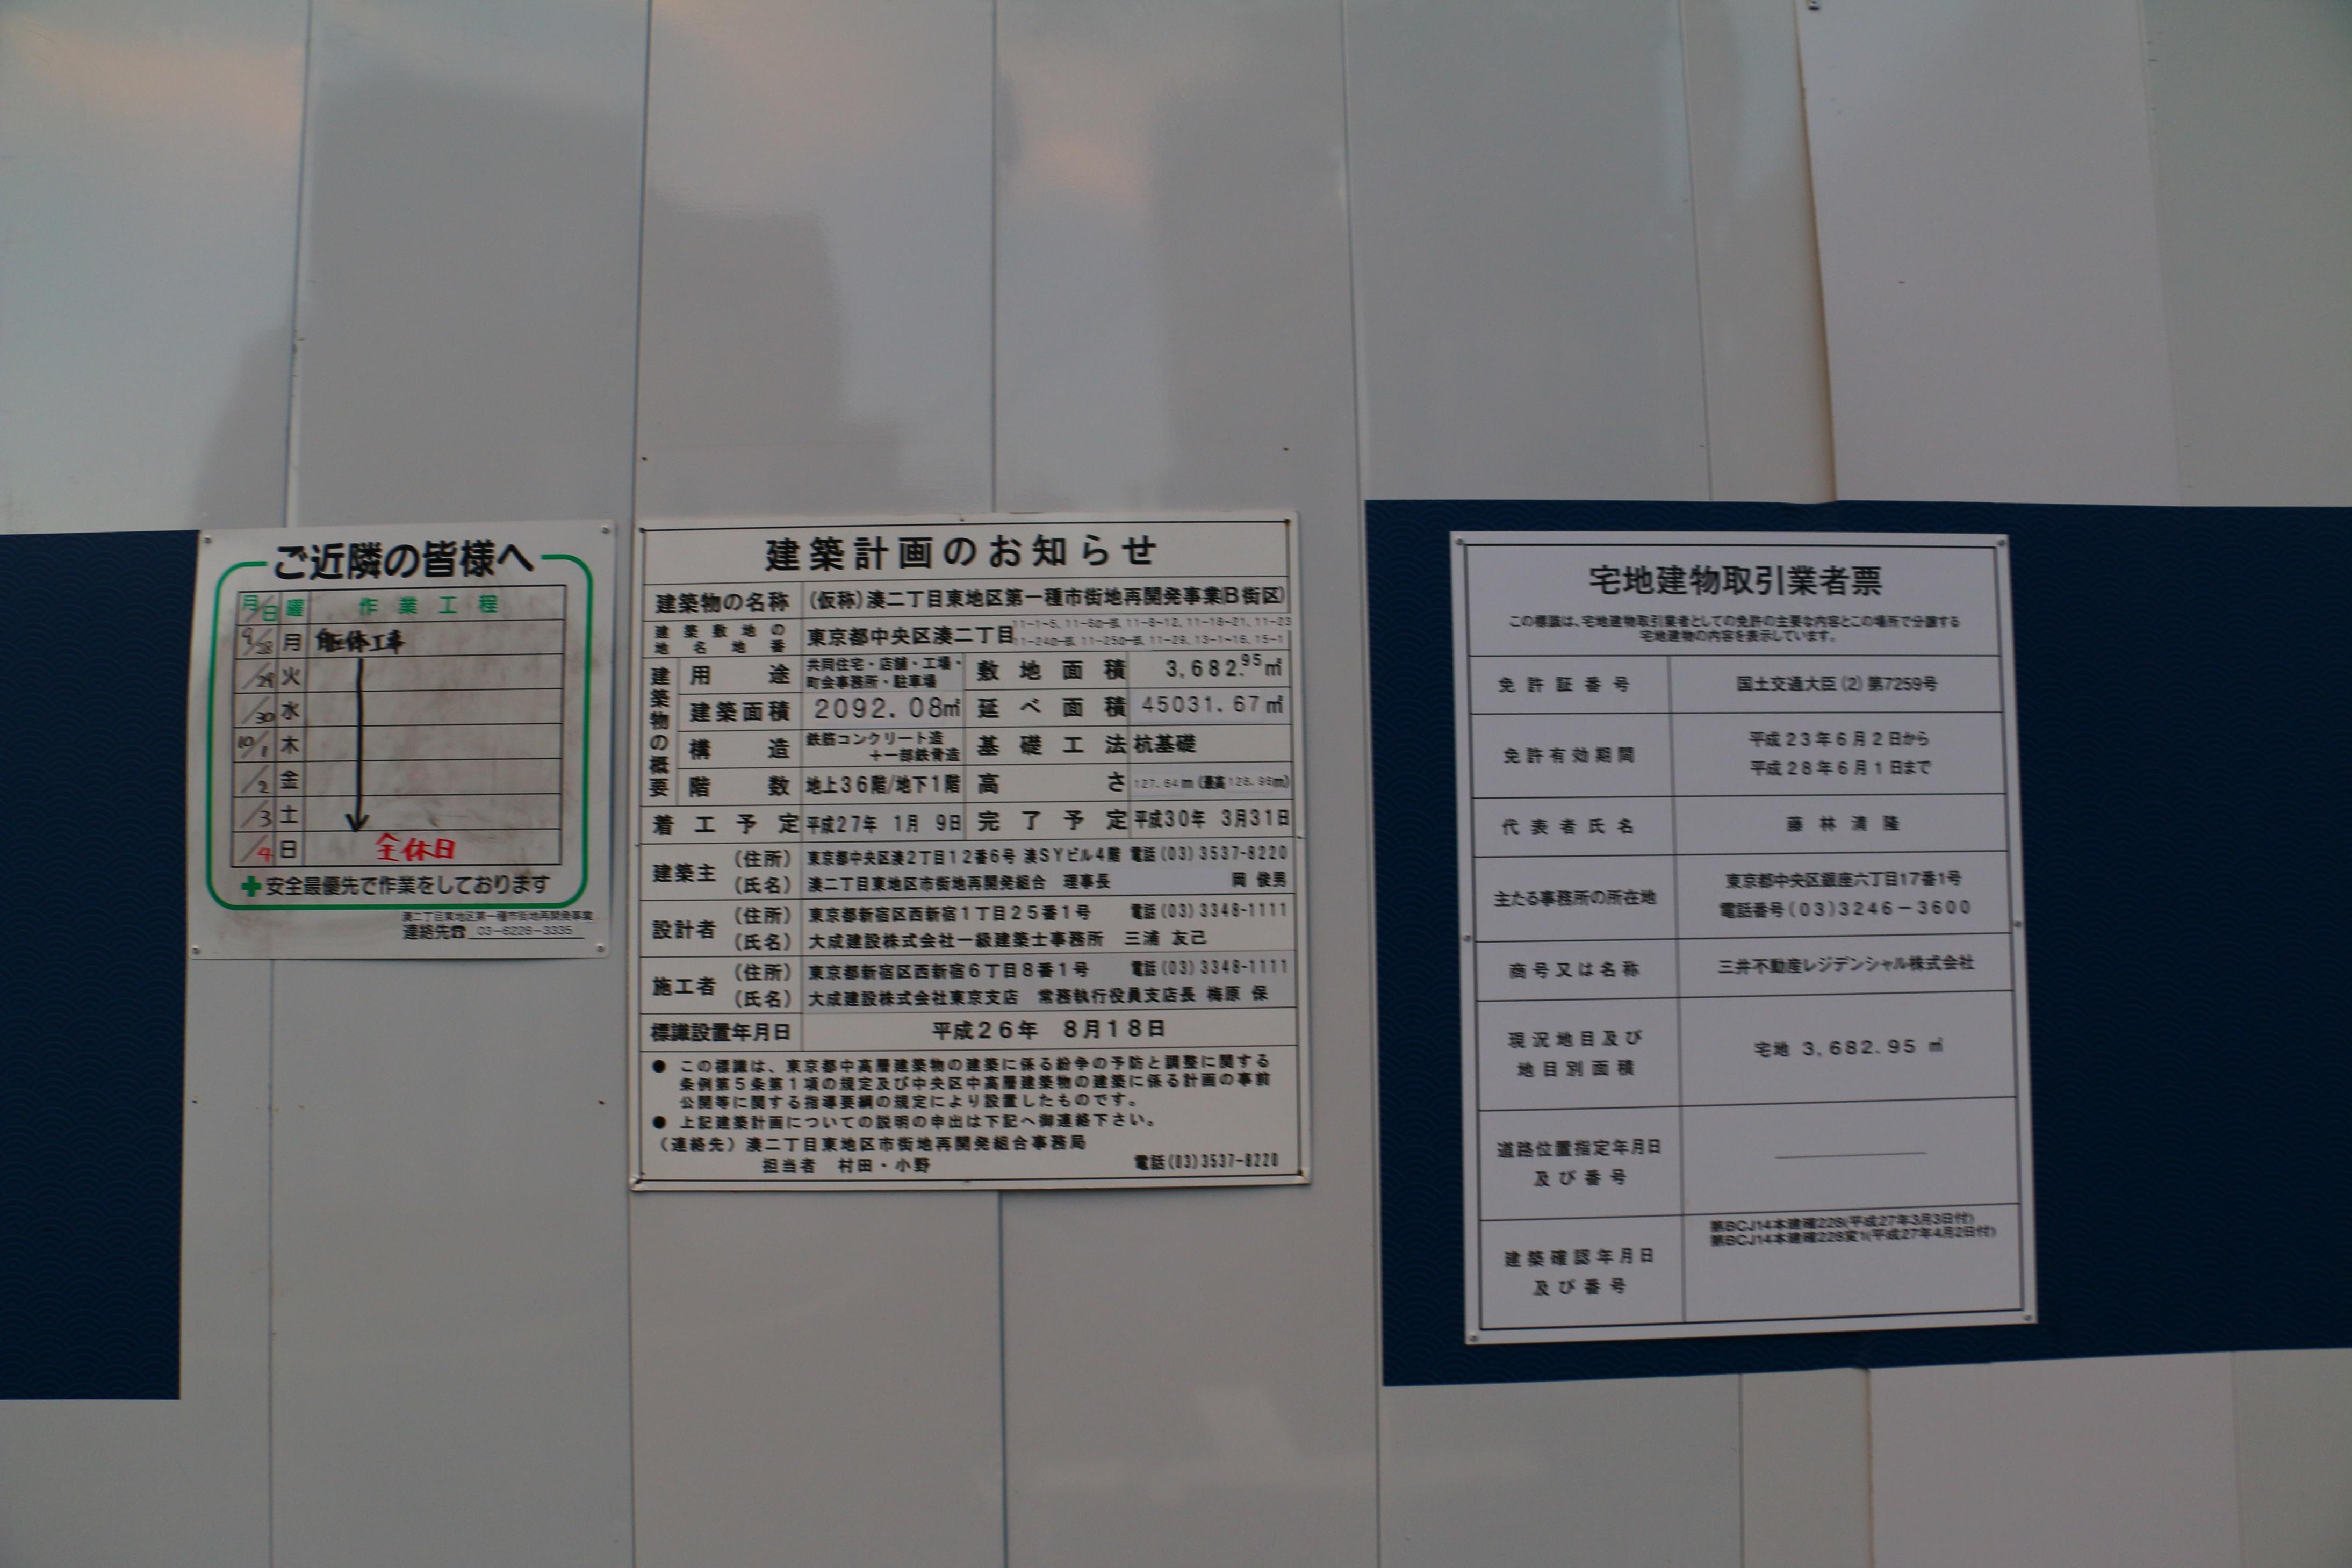 ご近隣の皆様へ
月/日 曜 作業工程
9/28 月 躯体工事
/29 火
/30 水
10/1 木
/2 金
/3 土
/4 日 全休日
安全最優先で作業をしております
湊二丁目東地区第一種市街地再開発事業
連絡先☎ 03-6228-3335
建築計画のお知らせ
建築物の名称 (仮称)湊二丁目東地区第一種市街地再開発事業(B街区)
建築敷地の地名地番 東京都中央区湊二丁目
建築物の概要
用途 共同住宅・店舗・工場・町会事務所・駐車場 敷地面積 3,682.95㎡
建築面積 2092.08㎡ 延べ面積 45031.67㎡
構造 鉄筋コンクリート造+一部鉄骨造 基礎工法 杭基礎
階数 地上36階/地下1階 高さ
着工予定 平成27年 1月 9日 完了予定 平成30年 3月31日
建築主 (住所) 東京都中央区湊2丁目12番6号 湊SYビル4階 電話(03)3537-8220
(氏名) 湊二丁目東地区市街地再開発組合 理事長 岡 俊男
設計者 (住所) 東京都新宿区西新宿1丁目25番1号 電話(03)3348-1111
(氏名) 大成建設株式会社一級建築士事務所 三浦 友己
施工者 (住所) 東京都新宿区西新宿6丁目8番1号 電話(03)3348-1111
(氏名) 大成建設株式会社東京支店 常務執行役員支店長 梅原 保
標識設置年月日 平成26年 8月18日
● この標識は、東京都中高層建築物の建築に係る紛争の予防と調整に関する
条例第5条第1項の規定及び中央区中高層建築物の建築に係る計画の事前
公開等に関する指導要綱の規定により設置したものです。
● 上記建築計画についての説明の申出は下記へ御連絡下さい。
(連絡先)湊二丁目東地区市街地再開発組合事務局
担当者 村田・小野 電話(03)3537-8220
宅地建物取引業者票
この標識は、宅地建物取引業者としての免許の主要な内容とこの場所で分譲する
宅地建物の内容を表示しています。
免許証番号 国土交通大臣(2)第7259号
免許有効期間 平成23年6月2日から
平成28年6月1日まで
代表者氏名 藤林清隆
主たる事務所の所在地 東京都中央区銀座六丁目17番1号
電話番号(03)3246-3600
商号又は名称 三井不動産レジデンシャル株式会社
現況地目及び
地目別面積 宅地 3,682.95㎡
道路位置指定年月日
及び番号
建築確認年月日
及び番号
第BCJ14本建確228(平成27年3月3日付)
第BCJ14本建確228変1(平成27年4月2日付)